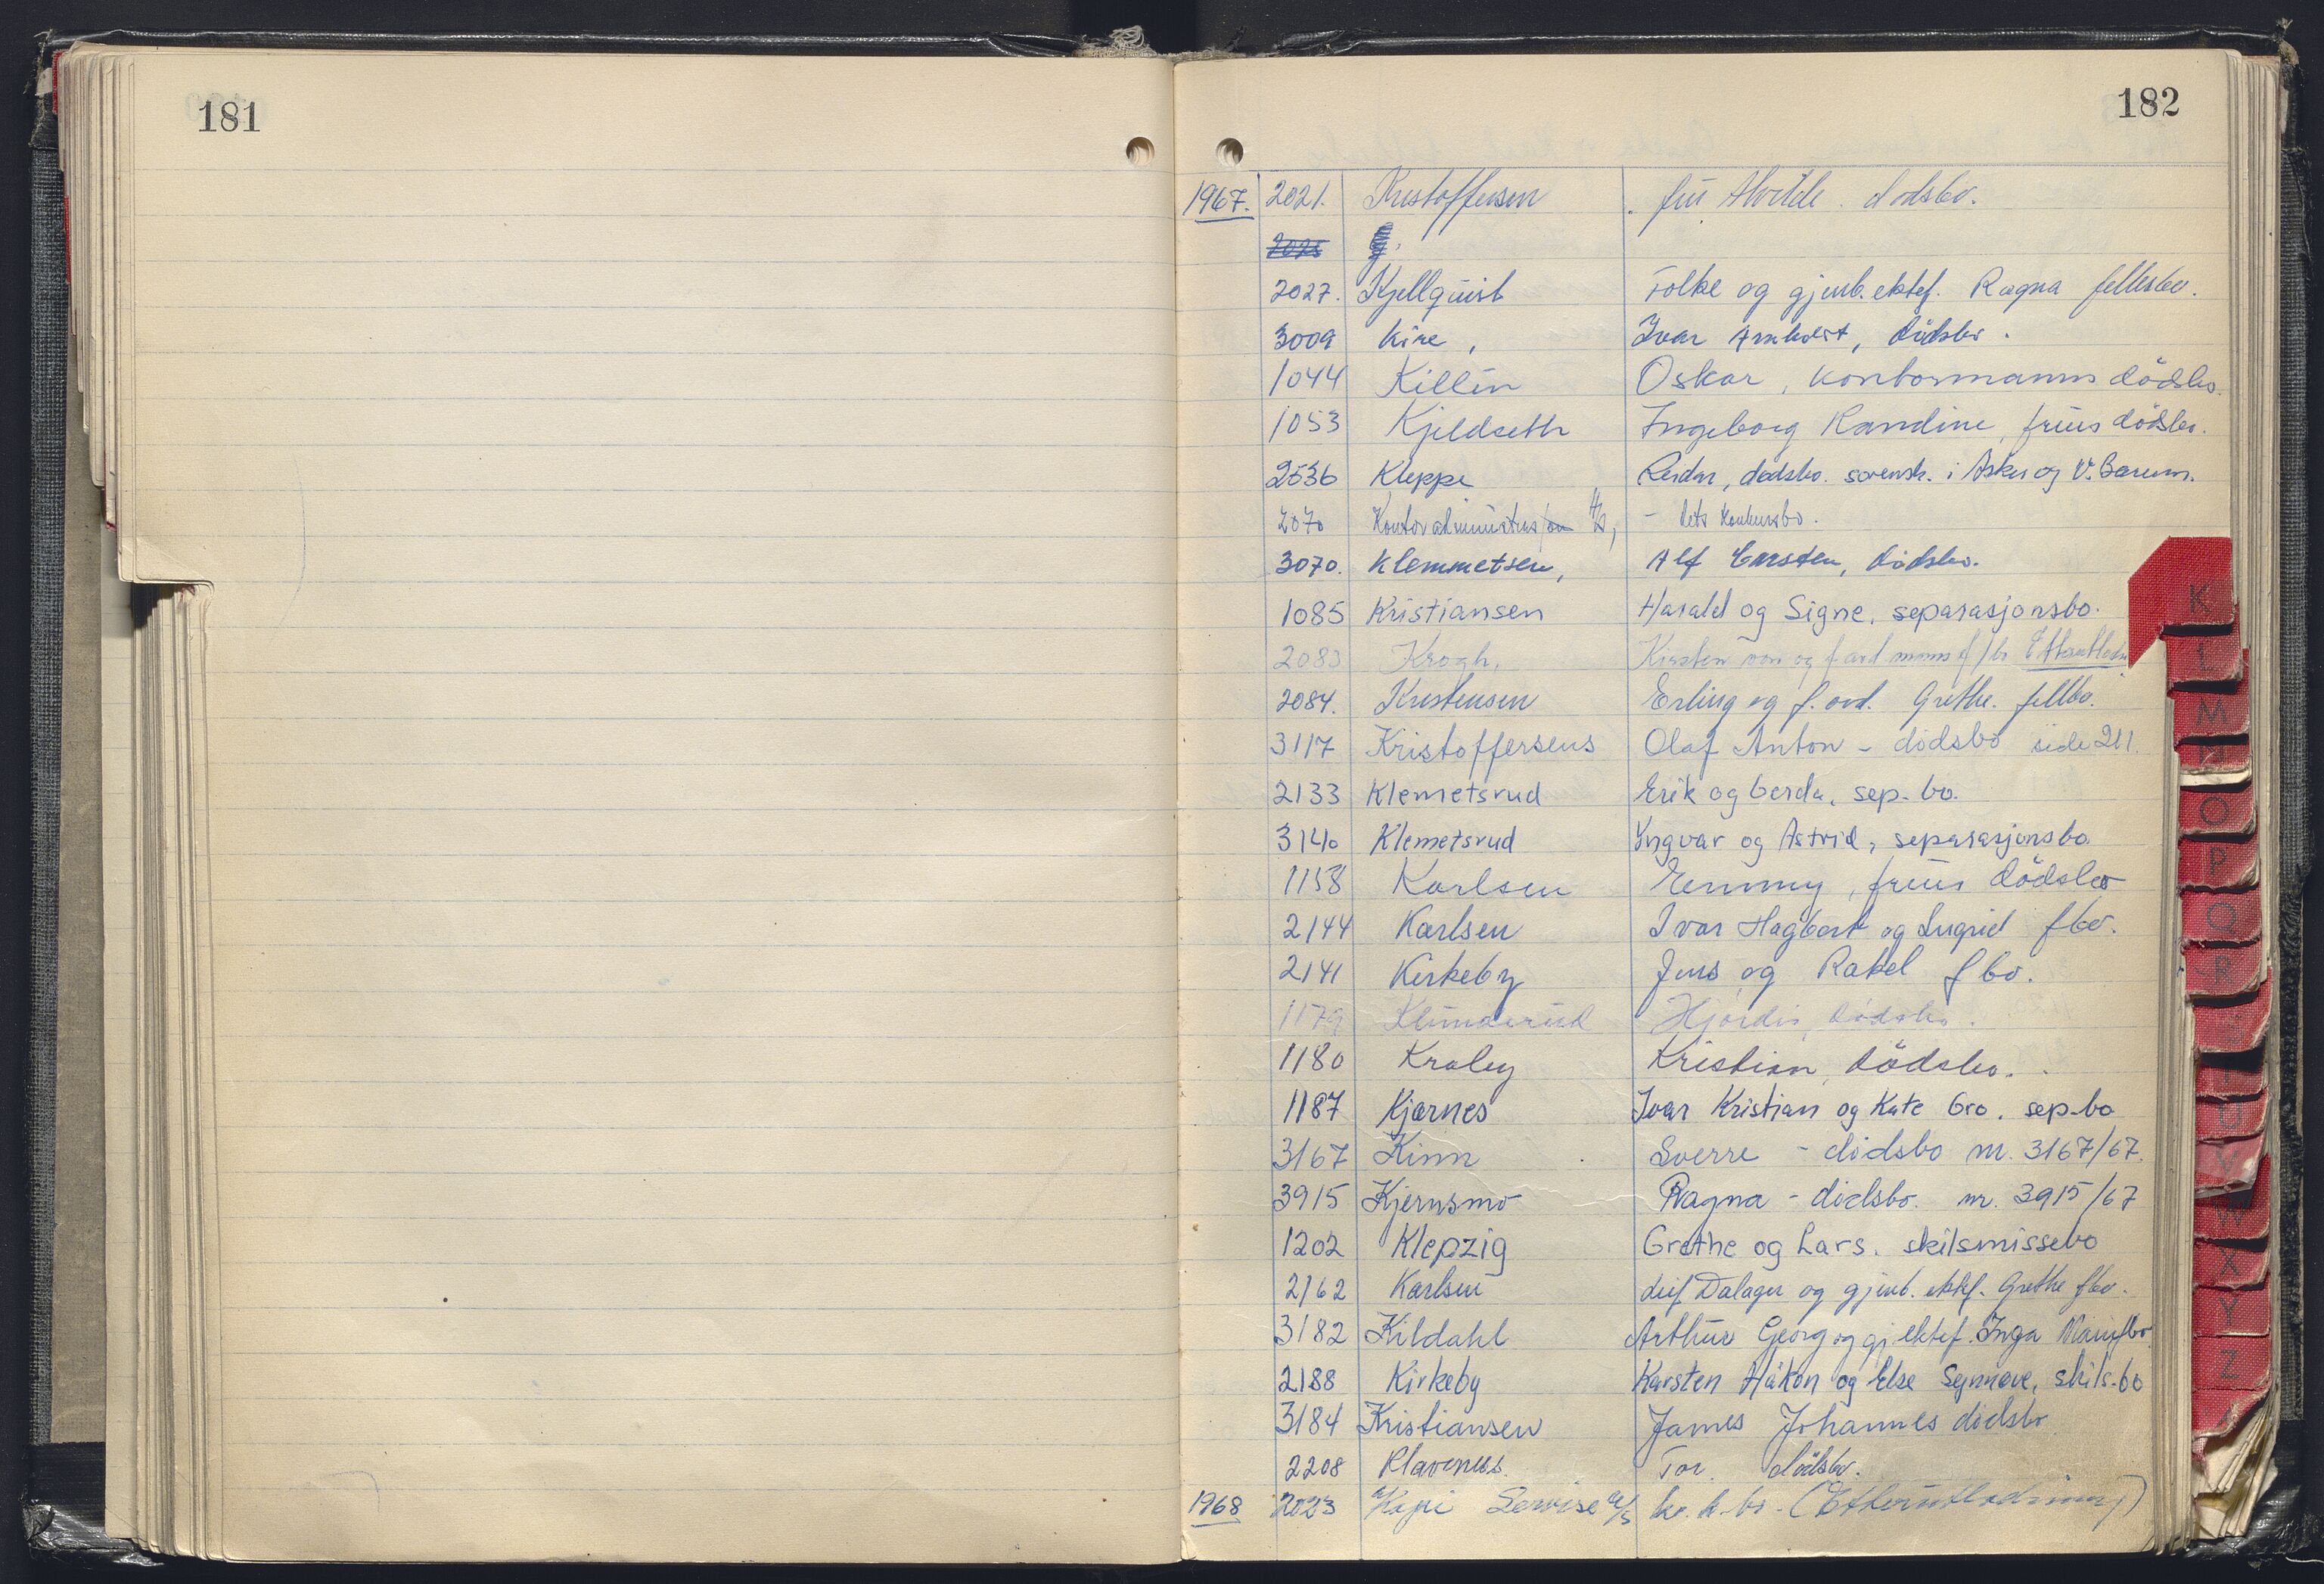 181
182
1967. 2021. Kristoffersen fru Alvilde. dødsbo.
2025
2027. Kjellquist Folke og gjenl. ektef. Ragna fellesbo.
3009 Kire, Ivar Arnholdt, dödsbo.
1044 Killin Oskar, kontormanns dödsbo.
1053 Kjeldseth Ingeborg Randine, frues dödsbo.
2536 Kleppe Reidar, dødsbo. sorensk. i Asker og V. Bærum.
2070 Kontoradministrasjon A/S, - dets konkursbo.
3070. Klemmetsen, Alf Carsten, dödsbo.
1085 Kristiansen Harald og Signe, separasjonsbo.
2083 Krogh, Kirsten von og f. avd. manns f/bo
2084. Kristensen Erling og f. avd. Grethe. fellbo.
3117 Kristoffersens Olaf Anton - dødsbo side 211.
2133 Klemetsrud Erik og Gerda, sep-bo.
3140 Klemetsrud Yngvar og Astrid, separasjonsbo
1158 Karlsen Emmy, frues dödsbo
2144 Karlsen Ivar Hagbart og Ingrid fbo.
2141 Kirkeby Jens og Rakel fbo.
1179 Klunderud Hjördis, dödsbo.
1180 Kraby Kristian, dödsbo.
1187 Kjærnes Ivar Kristian og Kate Gro. sep-bo
3167 Kinn Sverre - dødsbo nr. 3167/67.
3915 Kjernsmo Ragna - dødsbo. nr. 3915/67
1202 Klepzig Grethe og Lars. skilsmissebo
2162 Karlsen Leif Dalager og gjenl. ektef. Grethe fbo.
3182 Kildahl Arthur Georg og gj. ektef. Inga Marie fbo
2188 Kirkeby Karsten Håkon og Else Synnøve, skils-bo
3184 Kristiansen James Johannes dødsbo
2208 Klaveness. Tor. dödsbo.
1968 2023 Servise A/S ko. k. bo. - (Etterutlodning)
K
L
M
N
O
P
Q
R
S
T
U
V
W
X
Y
Z